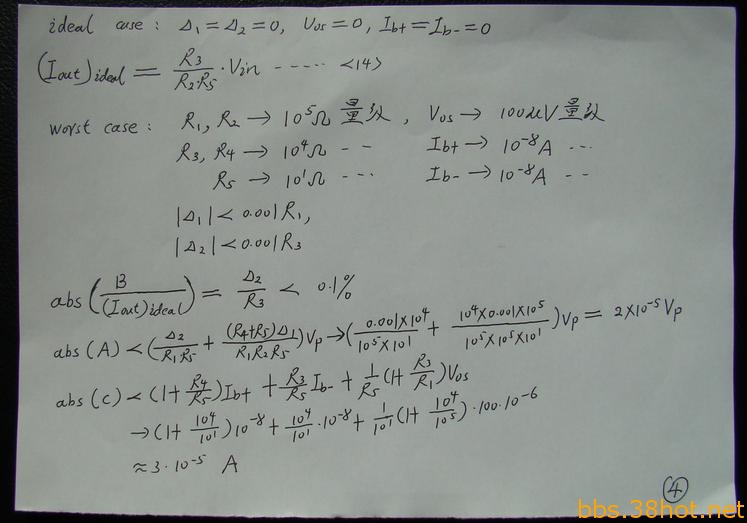 ideal case: Δ₁=Δ₂=0, Vos=0, Ib+=Ib-=0
(Iout)ideal = R₃/(R₂·R₅)·Vin ----- <14>
worst case: R₁, R₂ → 10⁵Ω 量级, Vos → 100uV量级
R₃, R₄ → 10⁴Ω -- Ib+ → 10⁻⁸A ---
R₅ → 10¹Ω --- Ib- → 10⁻⁸A --
|Δ₁| < 0.001R₁,
|Δ₂| < 0.001R₃
abs(B/(Iout)ideal) = Δ₂/R₃ < 0.1%
abs(A) < (Δ₂/(R₁R₅) + (R₄+R₅)Δ₁/(R₁R₂R₅))Vp → (0.001×10⁴/(10⁵×10¹) + 10⁴×0.001×10⁵/(10⁵×10⁵×10¹))Vp = 2×10⁻⁵Vp
abs(C) < (1+R₄/R₅)Ib+ + R₃/R₅ Ib- + 1/R₅(1+R₃/R₁)Vos
→ (1+10⁴/10¹)10⁻⁸ + 10⁴/10¹·10⁻⁸ + 1/10¹(1+10⁴/10⁵)·100·10⁻⁶
≈3·10⁻⁵ A
④
bbs.38hot.net